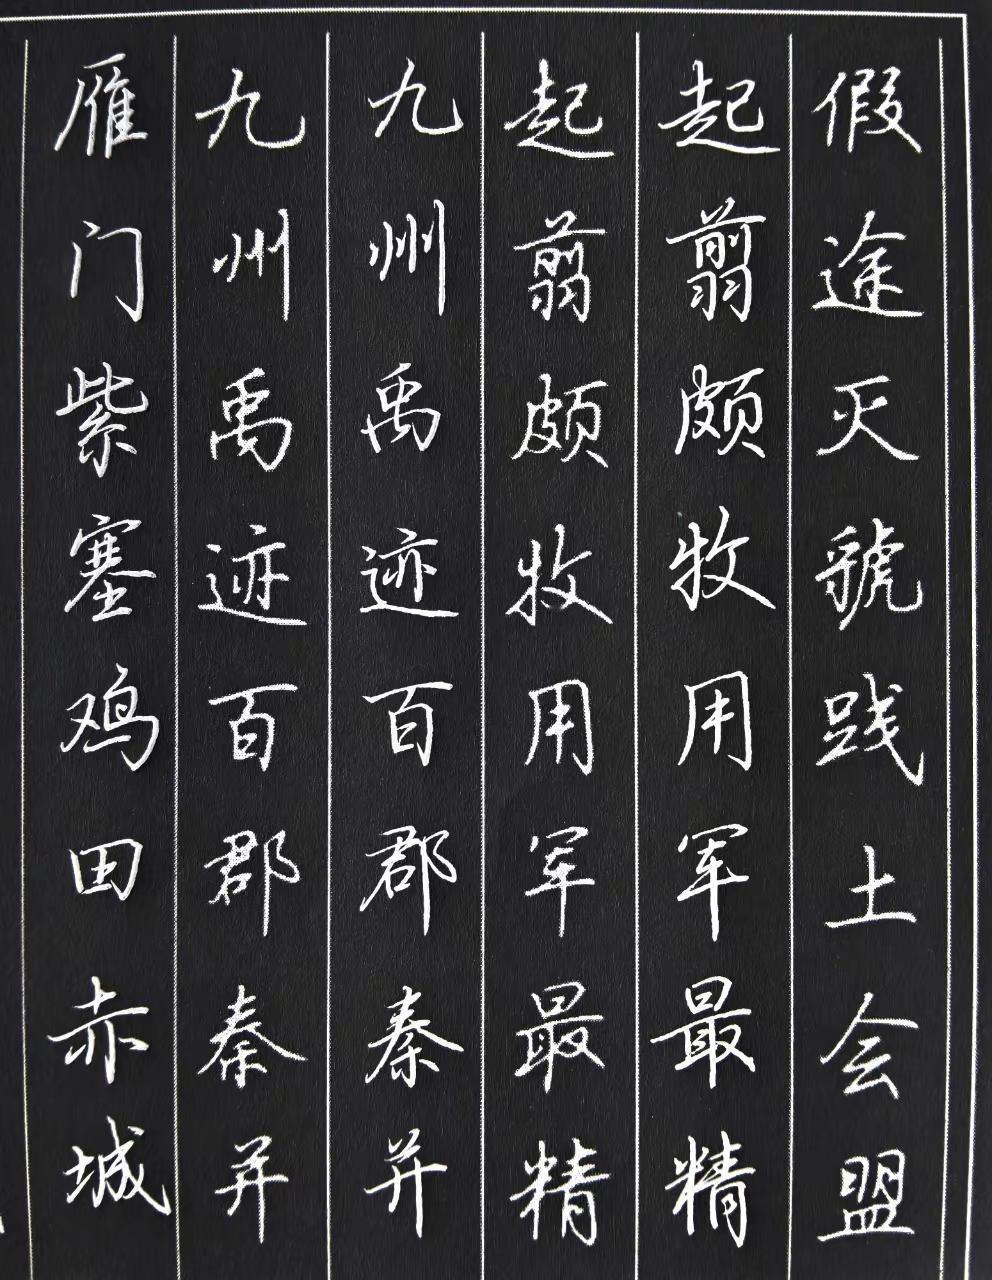 假途灭虢践土会盟
起翦颇牧用军最精
起翦颇牧用军最精
九州禹迹百郡秦并
九州禹迹百郡秦并
雁门紫塞鸡田赤城